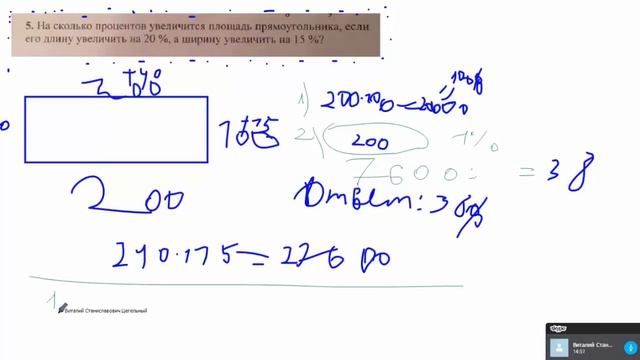 5. На сколько процентов увеличится площадь прямоугольника, если
его длину увеличить на 20 %, а ширину увеличить на 15 %?
+40
200
+15
1) 200·100 = 20000
100%
2) 200 1%
7600:
= 38
Ответ: 38%
240·115 = 27600
1
Виталий Станиславович Цегельный
skype
Виталий Стан...
14:57